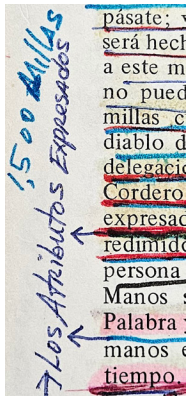 1,500 Millas
→ Los Atributos Expresados
pásate; y
será hech
a este m
no pued
millas c
diablo d
delegació
Cordero
expresad
redimido
persona
Manos
Palabra
manos e
tiempo